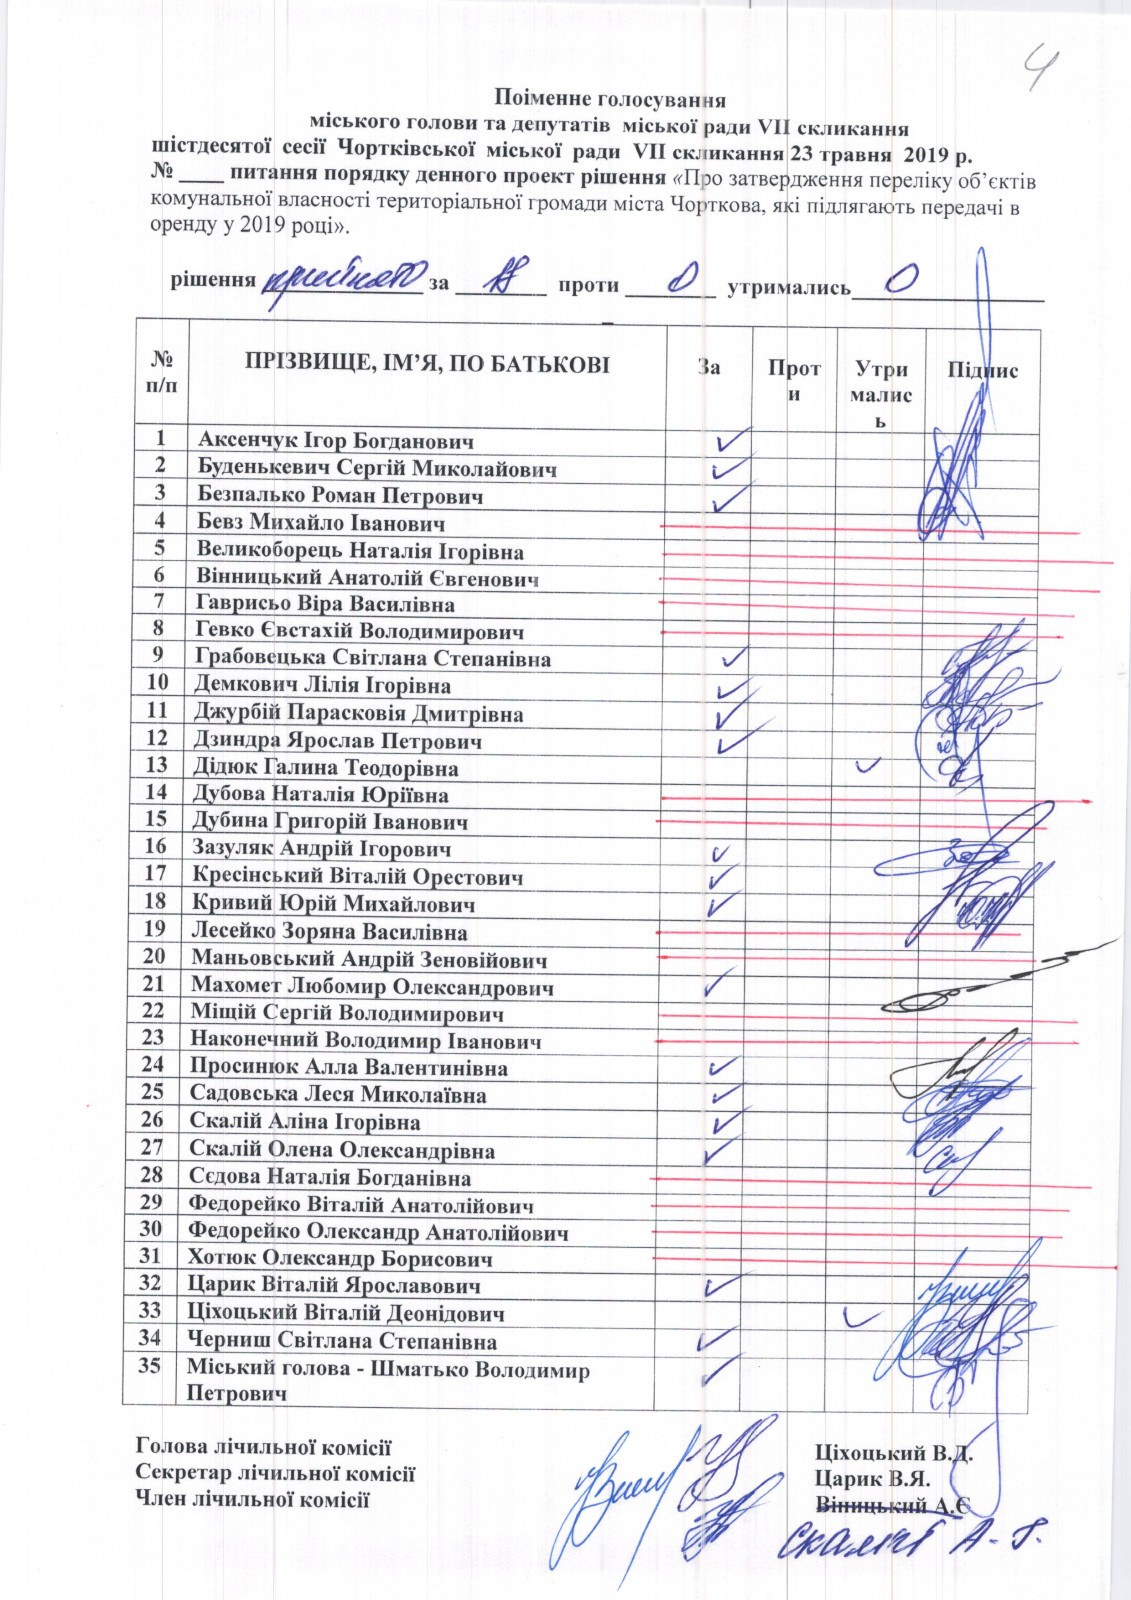 4
Поіменне голосування
міського голови та депутатів міської ради VII скликання
шістдесятої сесії Чортківської міської ради VII скликання 23 травня 2019 р.
№ ____ питання порядку денного проект рішення «Про затвердження переліку об’єктів
комунальної власності територіальної громади міста Чорткова, які підлягають передачі в
оренду у 2019 році».
рішення прийнято за 18 проти 0 утримались 0
№ п/п ПРІЗВИЩЕ, ІМ’Я, ПО БАТЬКОВІ За Прот и Утри малис ь Підпис
1 Аксенчук Ігор Богданович
2 Буденькевич Сергій Миколайович
3 Безпалько Роман Петрович
4 Бевз Михайло Іванович
5 Великоборець Наталія Ігорівна
6 Вінницький Анатолій Євгенович
7 Гаврисьо Віра Василівна
8 Гевко Євстахій Володимирович
9 Грабовецька Світлана Степанівна
10 Демкович Лілія Ігорівна
11 Джурбій Парасковія Дмитрівна
12 Дзиндра Ярослав Петрович
13 Дідюк Галина Теодорівна
14 Дубова Наталія Юріївна
15 Дубина Григорій Іванович
16 Зазуляк Андрій Ігорович
17 Кресінський Віталій Орестович
18 Кривий Юрій Михайлович
19 Лесейко Зоряна Василівна
20 Маньовський Андрій Зеновійович
21 Махомет Любомир Олександрович
22 Міщій Сергій Володимирович
23 Наконечний Володимир Іванович
24 Просинюк Алла Валентинівна
25 Садовська Леся Миколаївна
26 Скалій Аліна Ігорівна
27 Скалій Олена Олександрівна
28 Сєдова Наталія Богданівна
29 Федорейко Віталій Анатолійович
30 Федорейко Олександр Анатолійович
31 Хотюк Олександр Борисович
32 Царик Віталій Ярославович
33 Ціхоцький Віталій Деонідович
34 Черниш Світлана Степанівна
35 Міський голова - Шматько Володимир
Петрович
Голова лічильної комісії Ціхоцький В.Д.
Секретар лічильної комісії Царик В.Я.
Член лічильної комісії Віницький А.Є
Скалій А. І.